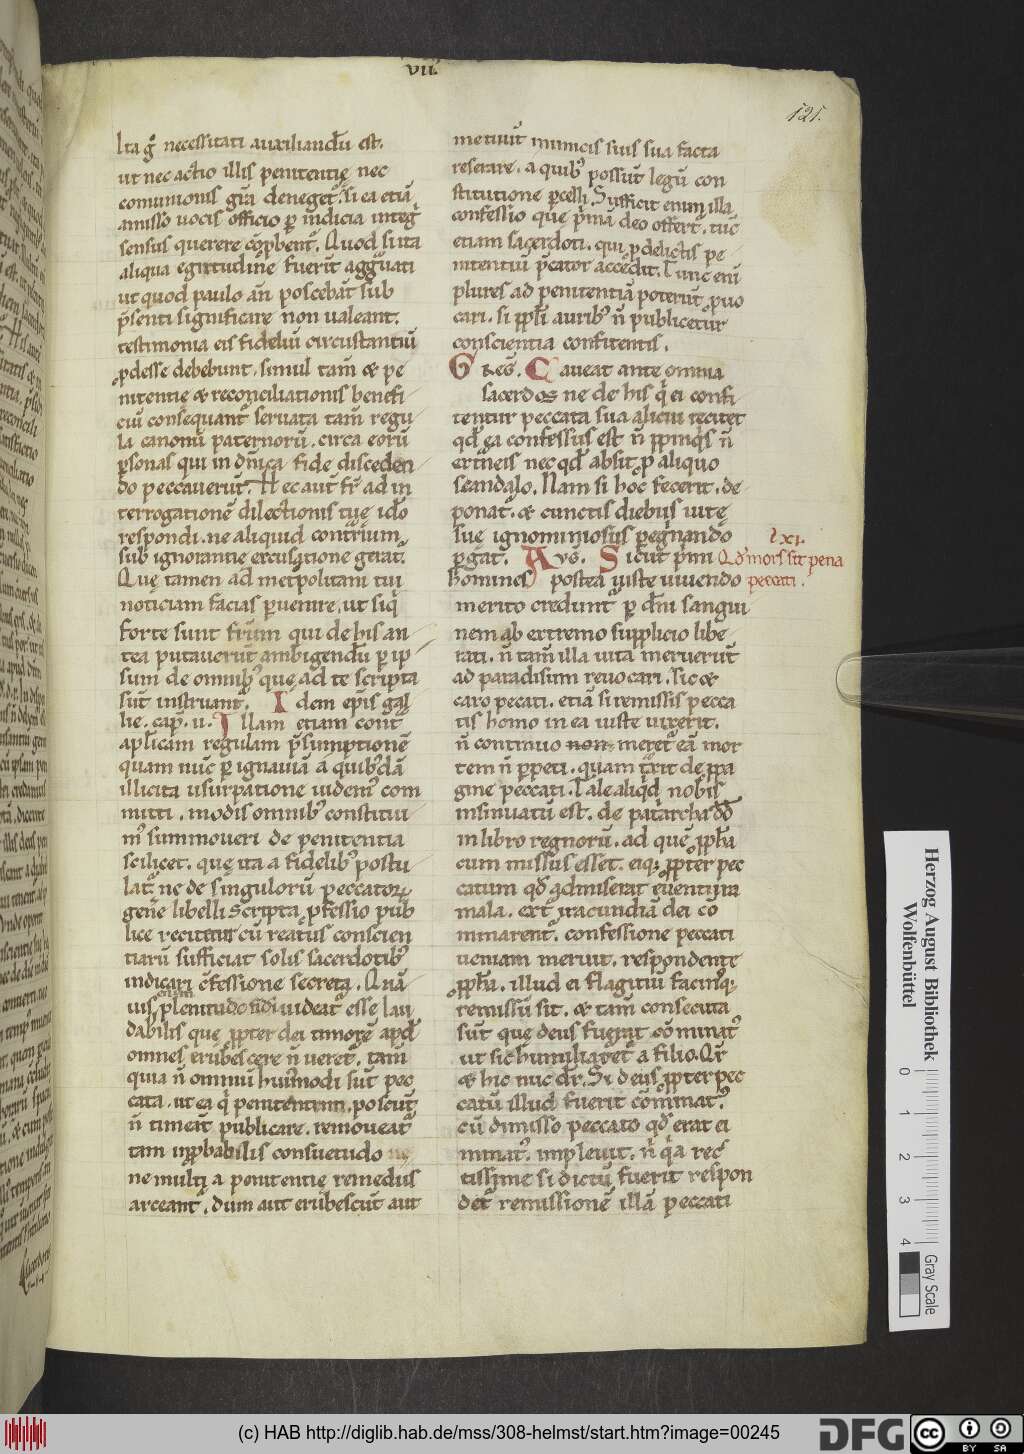 vii.
121.
Ita g̊ necessitati auxiliandū est.
ut nec actio illis penitentię nec
comunionis gr̄a deneget᷑. si ea etiā
amisso uocis officio p̲ indicia integ̾
sensus querere cōpbent᷑. Quod si ita
aliqua egritudine fuerīt aggͣuati
ut quod paulo an̄ poscebāt sub
p̄senti significare non ualeant.
testimonia eis fidelíū circumstantiū
ꝓdesse debebunt. simul tam̄ & pe
nitentie & reconciliationis benefi
ciū consequant᷑ seruata tam̄ regu
la canonū paternorū. circa eorū
p̲sonas qui in dn̄ica fide disceden
do peccauerūt. Hec aut̄ fr̄ ad in
terrogationē dilectionis tuę ido
respondi. ne aliquid contͣrium
sub ignorantie excusatione gerat᷑.
Quę tamen ad metropolitani tui
noticiam facias p̲uenire. ut siq̇
forte sunt fr̄um qui de his an
tea putauerūt ambigendū p̲ ip
sum de omnibꝰ quę ad te scripta
sūt instruant᷑. Idem ep̄is gal
lie. cap̄. ii. Illam etiam contͣ
apl̄icam regulam p̄sumptionē
quam nūc p̲ ignauiā a quibꝰdā
illicita usurpatione uidemꝰ com
mitti. modis omnibꝰ constitui
mꝰ summoueri de penitentia
scilicet. quę ita a fidelibꝰ postu
lat᷑ ne de singulorū peccatorꝝ
gen̄e libelli scripta p̲fessio pub
lice recitetur cū reatus conscien
tiarū sufficiat solis sacerdotibꝰ
indicari cōfessione secreta. Quā
enim
uis plenitudo fidi uideat᷑ esse lau
dabilis que ꝓpter dei timorē apd̄
omnes erubescere n̄ ueret᷑. tam̄
quia n̄ omniū huiꝰmodi sūt pec
cata. ut ea q̇ penitentiam poscūt
n̄ timeāt publicare. remoueat᷑
tam inꝓbabilis consuetudo
ne multi a penitentię remediis
arceant᷑. dum aut erubescūt aut
metuūt inimicis suis sua facta
reserare. a quibꝰ possūt legū con
stitutione p̲celli. Sufficit enim illa
confessio quę p̄mū deo offert᷑. tūc
etiam sacerdoti. qui ꝓ delictis pe
nitentiū p̄cator accedit. Tunc eni̅
plures ad penitentiā poterūt ꝓuo
cari. si ppl̄i auribꝰ n̄ publicetur
conscientia confitentis.
Greḡ. Caueat ante omnia
sacerdos ne de his q̇ ei confi
tentur peccata sua alicui recitet
qd̄ ea confessus est n̄ ꝓpinq̇s n̄
extͣneis nec qd̄ absit ꝓ aliquo
scandalo. Nam si hoc fecerit. de
ponat᷑. & cunctis diebus uitę
suę ignominiosus p̲egͥnando
p̲gat. Aug̅. Sicut p̄mi
homines postea iuste uiuendo
merito credunt᷑ p̲ dn̄i sangui
nem ab extremo supplicio libe
rati. n̄ tam̄ illa uita meruerūt
ad paradisum reuocari. sic &
caro peccati. etiā si remissis pecca
tis homo in ea iuste uixerit.
n̄ continuo non meret᷑ eā mor
tem n̄ p̲peti. quam tͣxit de ꝓpa
gine peccati. Tale aliqd̄ nobis
insinuatū est. de patͥarcha dd̄
in libro regnorū. ad quē ꝓph̄a
cum missus esset. eiq; ꝓpter pec
catum qd̄ admiserat euentura
mala. ex ir̄a iracundiā dei cō
minarent᷑. confessione peccati
ueniam meruit. respondente
ꝓph̄a. illud ei flagitiū facinꝰq;
remissū sit. & tam̄ consecuta
sūt que deus fuerat cōminatꝰ
ut sic humiliaret᷑ a filio. Qr̄
& hic nūc dr̄. Si deus ꝓpter pec
catū illud fuerit cōminatꝰ.
cū dimisso peccato qd̄ erat ei
minatꝰ. impleuit. n̄ q̇a rec
tissime si dictū fuerit respon
det᷑ remissionē illā peccati
lxi.
Qd̄ mors sit pena
peccati.
Herzog August Bibliothek
Wolfenbüttel
0 1 2 3 4
Gray Scale
(c) HAB http://diglib.hab.de/mss/308-helmst/start.htm?image=00245
DFG
cc BY SA